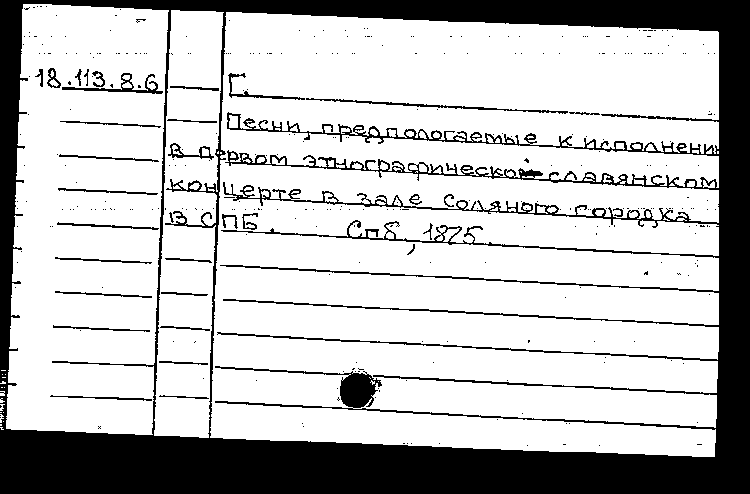 18.113.8.6 Г.
Песни, предпологаемые к исполнению
в первом этнографическо-славянском
концерте в зале Соляного городка
в СПБ. Спб, 1875.